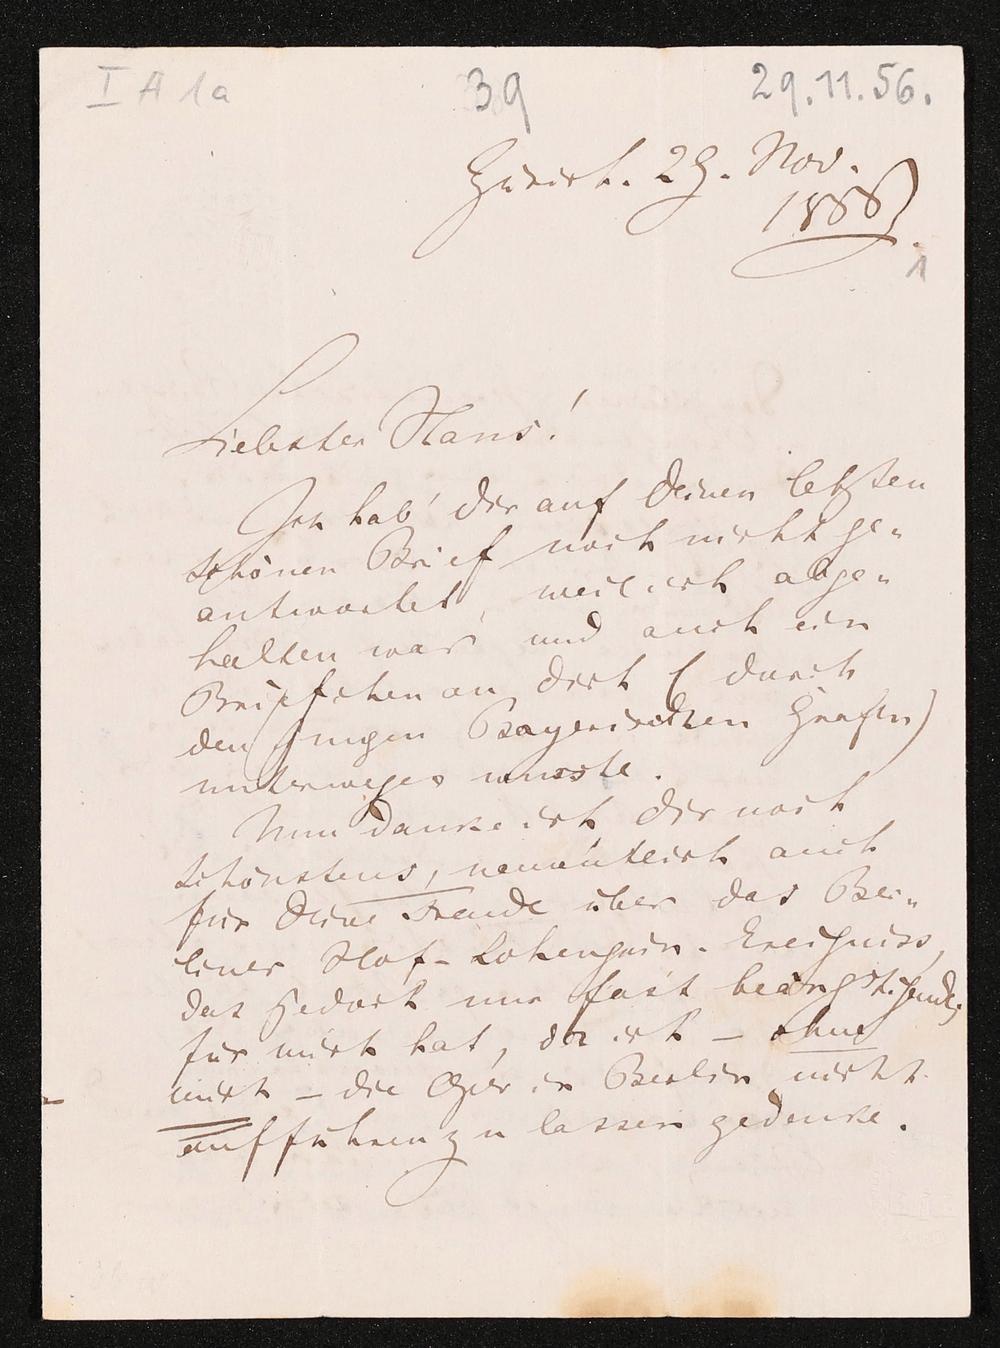 I A 1a 39 29.11.56.
Zürich. 29. Nov.
1856
1
Liebster Hans!
Ich hab' dir auf deinen letzten
schönen Brief noch nicht ge-
antwortet, weil ich abge-
halten war und auch ein
an dich (durch
den jungen Bayerischen Grafen)
unterweges wusste.
Nun danke ich dir noch
schönstens, namentlich auch
für deine Freude über das Ber-
liner Hof-Lohengrin-Ereigniss,
das jedoch nur fast beängstigendes
für mich hat, da ich – ohne
mich – die Oper in Berlin nicht
aufführen zu lassen gedenke.